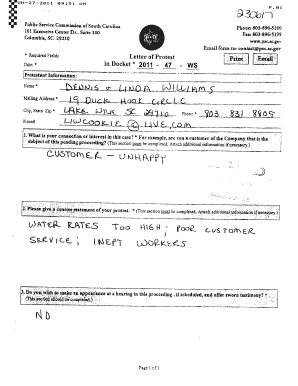 JAN-27-2011 09:51 AM
P.01
230617
Public Service Commission of South Carolina
101 Executive Center Dr., Suite 100
Columbia, SC 29210
Phone: 803-896-5100
Fax: 803-896-5199
www.psc.sc.gov
Email form to: contact@psc.sc.gov
* Required Fields
Letter of Protest
Print
Email
Date: *
in Docket * 2011 - 47 - WS
Protestant Information:
Name * DENNIS & LINDA WILLIAMS
Mailing Address * 19 DUCK HOOK CIRCLE
City, State Zip * LAKE WYLIE SC 29710 Phone * 803 831 8805
E-mail LIWCOOKIE@LIVE.COM
1. What is your connection or interest in this case? * For example, are you a customer of the Company that is the
subject of this pending proceeding? (This section must be completed. Attach additional information if necessary.)
CUSTOMER - UNHAPPY
2. Please give a concise statement of your protest. * (This section must be completed. Attach additional information if necessary.)
WATER RATES TOO HIGH; POOR CUSTOMER
SERVICE; INEPT WORKERS
3. Do you wish to make an appearance at a hearing in this proceeding, if scheduled, and offer sworn testimony? *
(This section must be completed.)
NO
Page 1 of 1